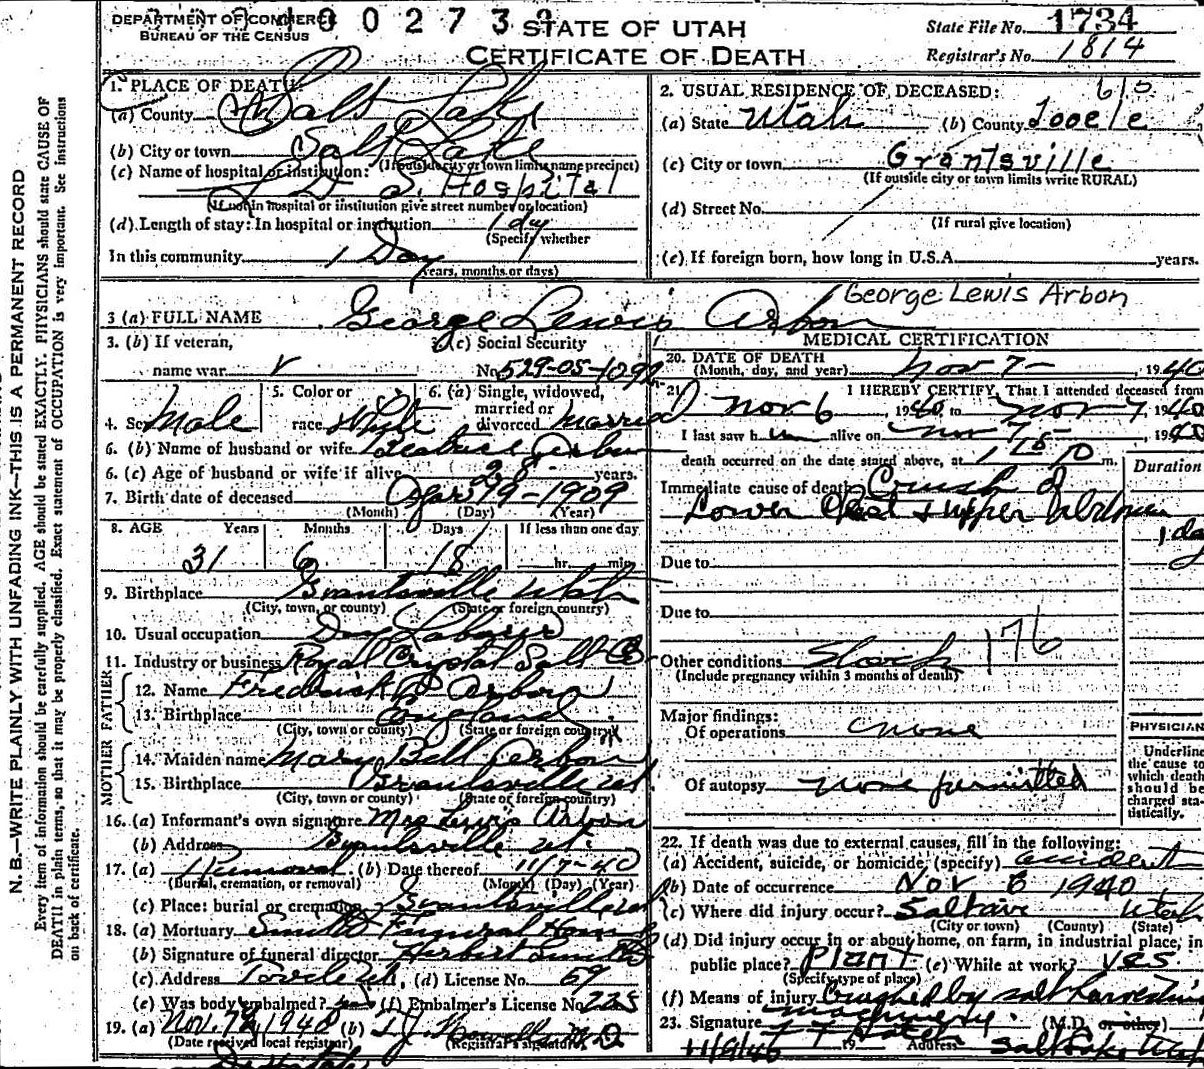 DEPARTMENT OF COMMERCE
BUREAU OF THE CENSUS
0 0 2 7 3
STATE OF UTAH
CERTIFICATE OF DEATH
State File No. 1734
Registrar's No. 1814
N.B.—WRITE PLAINLY WITH UNFADING INK—THIS IS A PERMANENT RECORD
Every item of information should be carefully supplied. AGE should be stated EXACTLY. PHYSICIANS should state CAUSE OF
DEATH in plain terms, so that it may be properly classified. Exact statement of OCCUPATION is very important. See instructions
on back of certificate.
1. PLACE OF DEATH:
(a) County Salt Lake
(b) City or town Salt Lake
(If outside city or town limits name precinct)
(c) Name of hospital or institution:
L D S. Hospital
(If not in hospital or institution give street number or location)
(d) Length of stay: In hospital or institution 1 day
(Specify whether
In this community 1 Day
years, months or days)
2. USUAL RESIDENCE OF DECEASED:
(a) State Utah (b) County Tooele
(c) City or town Grantsville
(If outside city or town limits write RURAL)
(d) Street No.
(If rural give location)
(e) If foreign born, how long in U.S.A. years.
3 (a) FULL NAME George Lewis Arbon George Lewis Arbon
3. (b) If veteran,
name war
3. (c) Social Security
No. 529-05-1092
4. Sex Male
5. Color or
race White
6. (a) Single, widowed,
married or
divorced Married
6. (b) Name of husband or wife Beatrice Arbon
6. (c) Age of husband or wife if alive 28 years.
7. Birth date of deceased Apr 19-1909
(Month) (Day) (Year)
8. AGE Years Months Days If less than one day
31 6 18 hr. min.
9. Birthplace Grantsville Utah
(City, town, or county) (State or foreign country)
10. Usual occupation Day Laborer
11. Industry or business Royal Crystal Salt Co
FATHER
12. Name Fredrick P Arbon
13. Birthplace England
(City, town or county) (State or foreign country)
MOTHER
14. Maiden name Mary Bell Arbon
15. Birthplace Grantsville Ut
(City, town or county) (State or foreign country)
16. (a) Informant's own signature Mrs Lewis Arbon
(b) Address Grantsville Ut.
17. (a) Removal (b) Date thereof 11/7-40
(Burial, cremation, or removal) (Month) (Day) (Year)
(c) Place: burial or cremation Grantsville Ut
18. (a) Mortuary Smith Funeral Home
(b) Signature of funeral director Herbert Smith
(c) Address Tooele Ut. (d) License No. 69
(e) Was body embalmed? yes (f) Embalmer's License No 225
19. (a) Nov. 7th, 1940 (b)
(Date received local registrar) (Registrar's signature)
MEDICAL CERTIFICATION
20. DATE OF DEATH
(Month, day, and year) Nov 7- , 1940
21. I HEREBY CERTIFY, That I attended deceased from
Nov 6 1940 to Nov 7, 1940
I last saw him alive on Nov 7 , 1940
death occurred on the date stated above, at 1 15 p m.
Duration
Immediate cause of death Crush of
Lower Chest & Upper Abdomen
1 da
Due to
Due to
Other conditions Shock 176
(Include pregnancy within 3 months of death)
Major findings:
Of operations none
Of autopsy none permitted
PHYSICIAN
Underline
the cause to
which death
should be
charged sta-
tistically.
22. If death was due to external causes, fill in the following:
(a) Accident, suicide, or homicide (specify) accident
(b) Date of occurrence Nov 6 1940
(c) Where did injury occur? Saltair Utah
(City or town) (County) (State)
(d) Did injury occur in or about home, on farm, in industrial place, in
public place? Plant (e) While at work? Yes
(Specify type of place)
(f) Means of injury Crushed by salt harvesting
machinery.
23. Signature (M.D. or other)
11/9/40 19 Address Salt Lake Utah